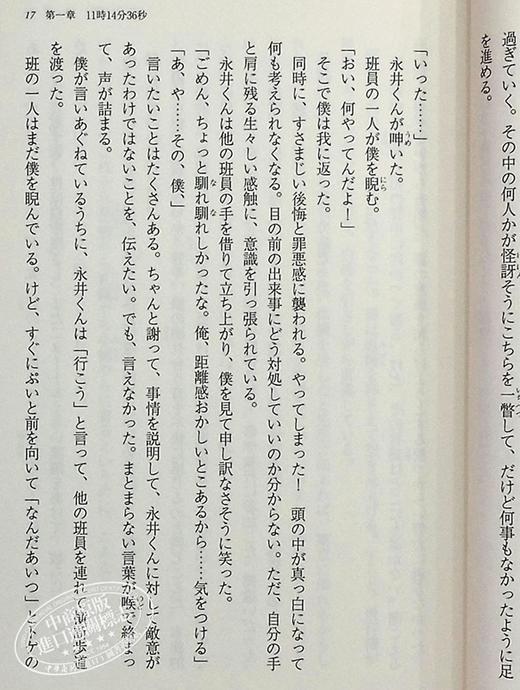 過ぎていく。その中の何人かが怪訝そうにこちらを一瞥して、だけど何事もなかったように足
を進める。
「いった……」
永井くんが呻いた。
班員の一人が僕を睨む。
「おい、何やってんだよ！」
そこで僕は我に返った。
同時に、すさまじい後悔と罪悪感に襲われる。やってしまった！　頭の中が真っ白になって
何も考えられなくなる。目の前の出来事にどう対処していいのか分からない。ただ、自分の手
と肩に残る生々しい感触に、意識を引っ張られている。
永井くんは他の班員の手を借りて立ち上がり、僕を見て申し訳なさそうに笑った。
「ごめん、ちょっと馴れ馴れしかったな。俺、距離感おかしいとこあるから……気をつける」
「あ、や……その、僕、」
言いたいことはたくさんある。ちゃんと謝って、事情を説明して、永井くんに対して敵意が
あったわけではないことを、伝えたい。でも、言えなかった。まとまらない言葉が喉で絡まっ
て、声が詰まる。
僕が言いあぐねているうちに、永井くんは「行こう」と言って、他の班員を連れて横断歩道
を渡った。
班の一人はまだ僕を睨んでいる。けど、すぐにぷいと前を向いて「なんだあいつ」とトゲの
17　第一章　11時14分36秒
中商原版
進口圖書標志